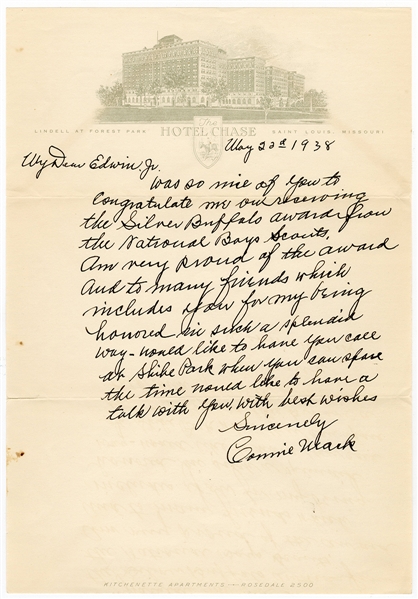 LINDELL AT FOREST PARK
The
HOTEL CHASE
SAINT LOUIS, MISSOURI
May 22d 1938
My Dear Edwin, Jr.
Was so nice of you to
Congratulate me on receiving
the Silver Buffalo award from
the National Boys Scouts,
Am very proud of the award
And to many friends which
includes you for my being
honored in such a splendid
way - would like to have you call
at Shibe Park when you can spare
the time would like to have a
talk with you, with best wishes
Sincerely
Connie Mack
KITCHENETTE APARTMENTS — ROSEDALE 2500